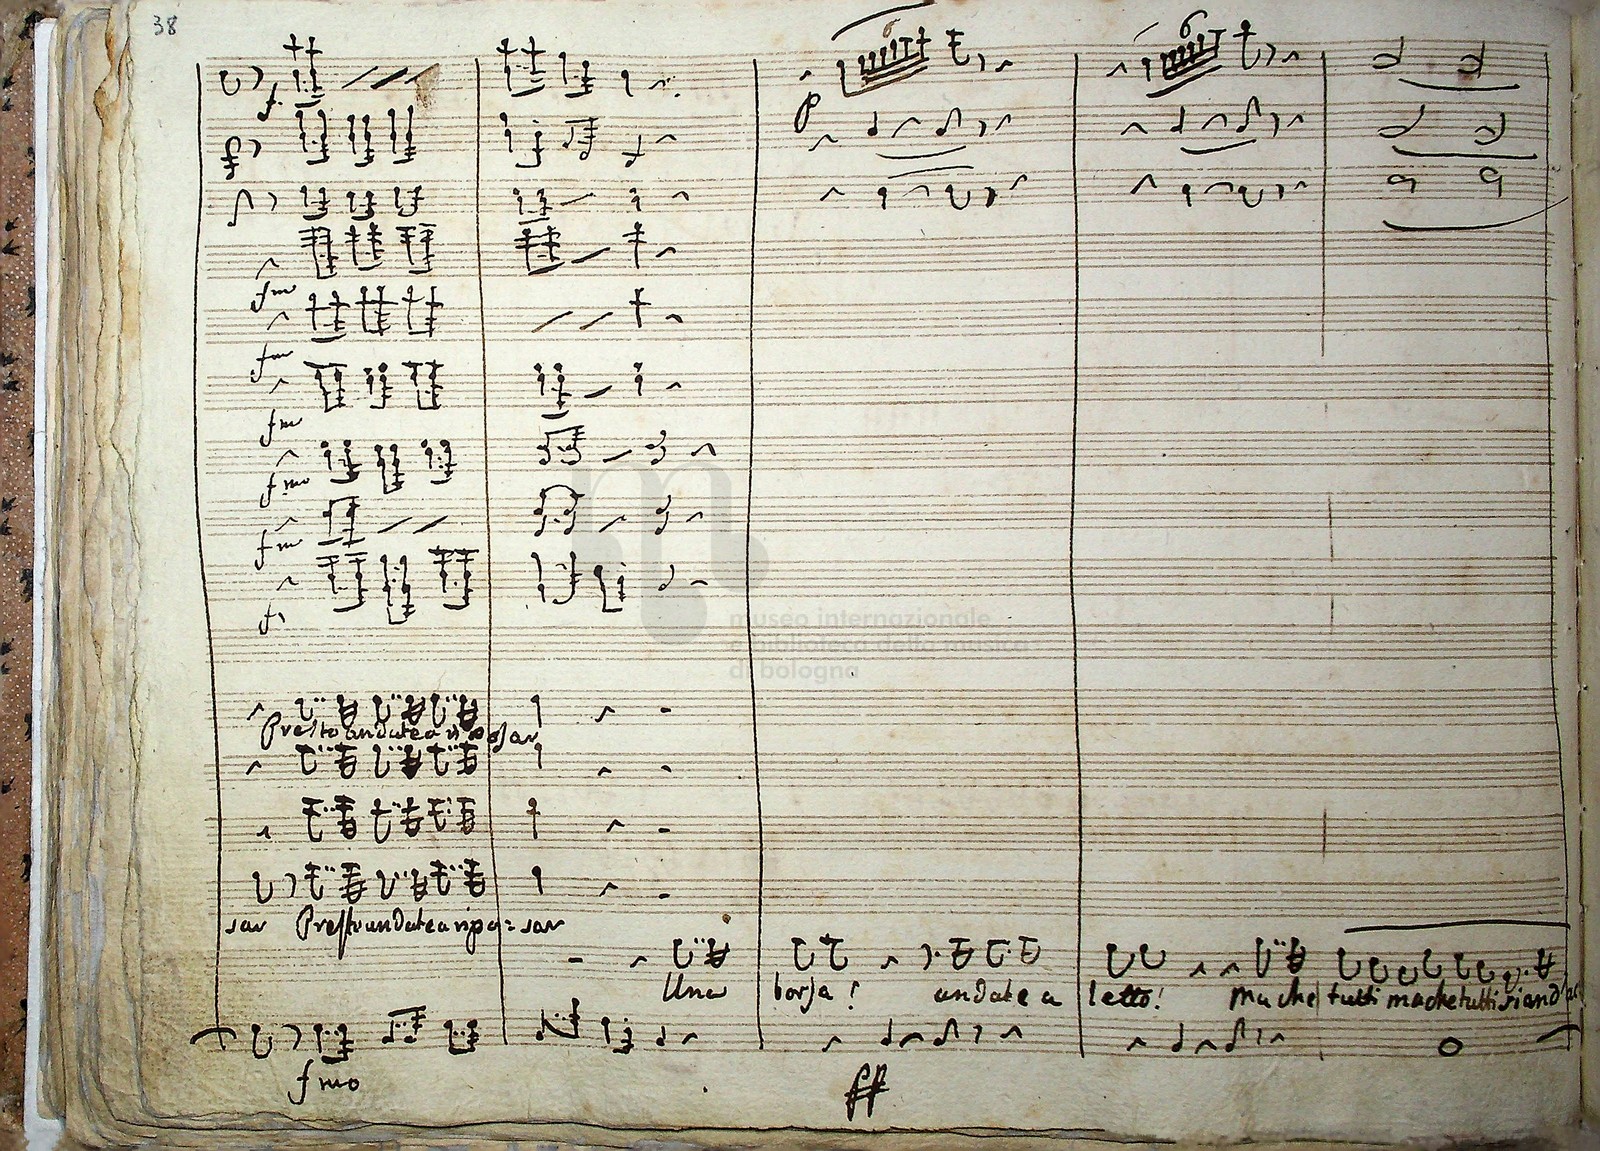 38
6
6
f.
p
fm
fm
fm
fmo
fm
f
museo internazionale
e biblioteca della musica
di bologna
Presto andate a riposar
sar Presto andate a ripo = sar
Una borsa! andate a letto! ma che tutti ma che tutti siand
fmo
ff